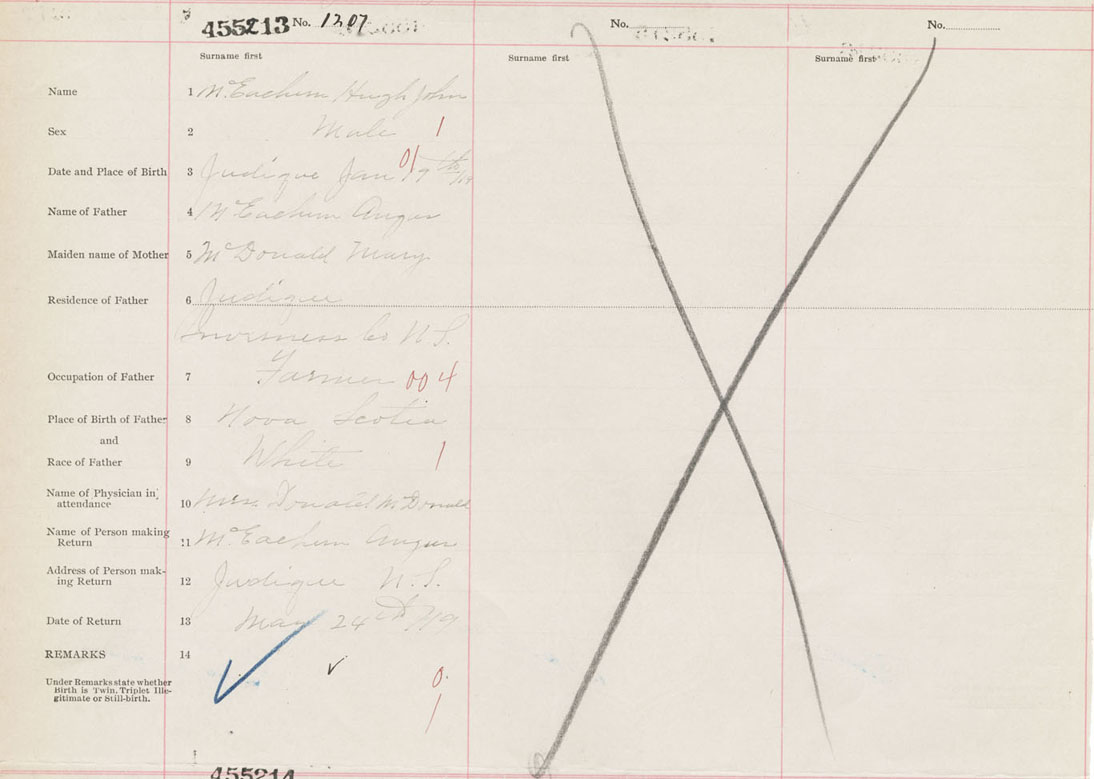 455213 No. 1207 No. No.
Surname first Surname first Surname first
Name 1 McEachern Hugh John
Sex 2 Male 1
Date and Place of Birth 3 Judique Jan 01 9th/19
Name of Father 4 McEachern Angus
Maiden name of Mother 5 McDonald Mary
Residence of Father 6 Judique
Inverness Co N.S.
Occupation of Father 7 Farmer 004
Place of Birth of Father 8 Nova Scotia
and
Race of Father 9 White 1
Name of Physician in attendance 10 Mrs. Donald McDonald
Name of Person making Return 11 McEachern Angus
Address of Person mak-ing Return 12 Judique N.S.
Date of Return 13 May 24th /19
REMARKS 14
Under Remarks state whether Birth is Twin, Triplet Ille-gitimate or Still-birth. 0
1
455214